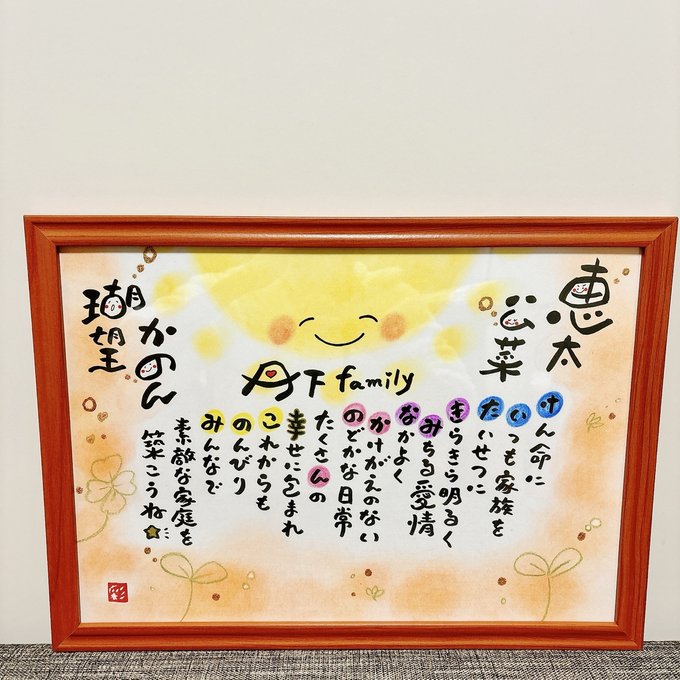 恵太
公菜
かのん
瑚望
丹下family
けん命に
いつも家族を
たいせつに
きらきら明るく
みちる愛情
なかよく
かけがえのない
のどかな日常
たくさんの
幸せに包まれ
これからも
のんびり
みんなで
素敵な家庭を
築こうね